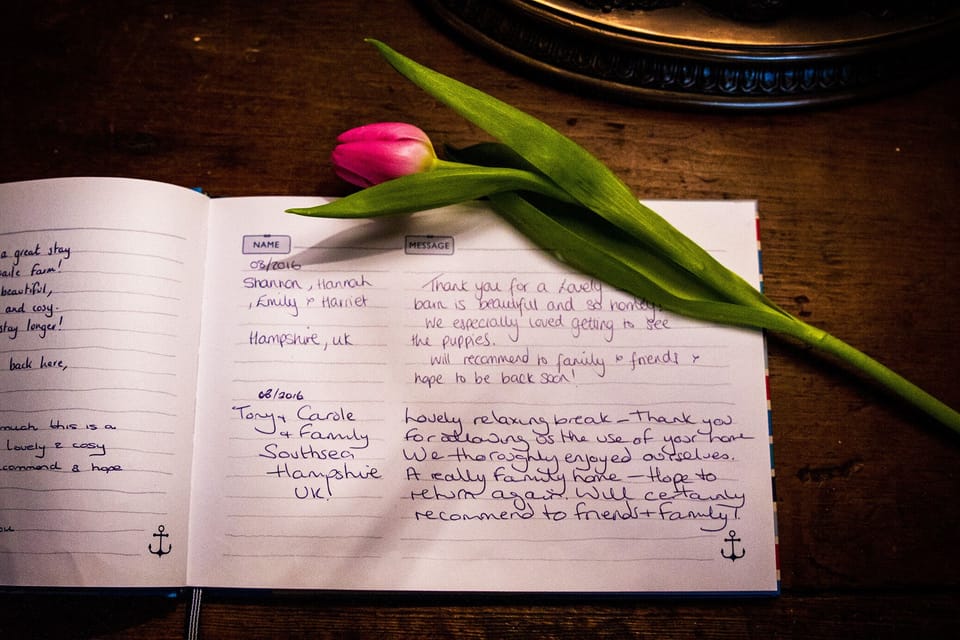 a great stay
farm!
beautiful,
and cosy.
stay longer!
back here,
much this is a
Lovely & cosy
& hope
NAME
MESSAGE
08/2016
Shannon, Hannah
, Emily & Harriet
Hampshire, UK
Thank you for a lovely
barn is beautiful and so homely.
We especially loved getting to see
the puppies.
Will recommend to family & friends &
hope to be back soon!
08/2016
Tony + Carole
+ Family
Southsea
Hampshire
UK!
Lovely relaxing break – Thank you
for allowing us the use of your home
We thoroughly enjoyed ourselves.
A really family home – Hope to
return again. Will certainly
recommend to friends + family!